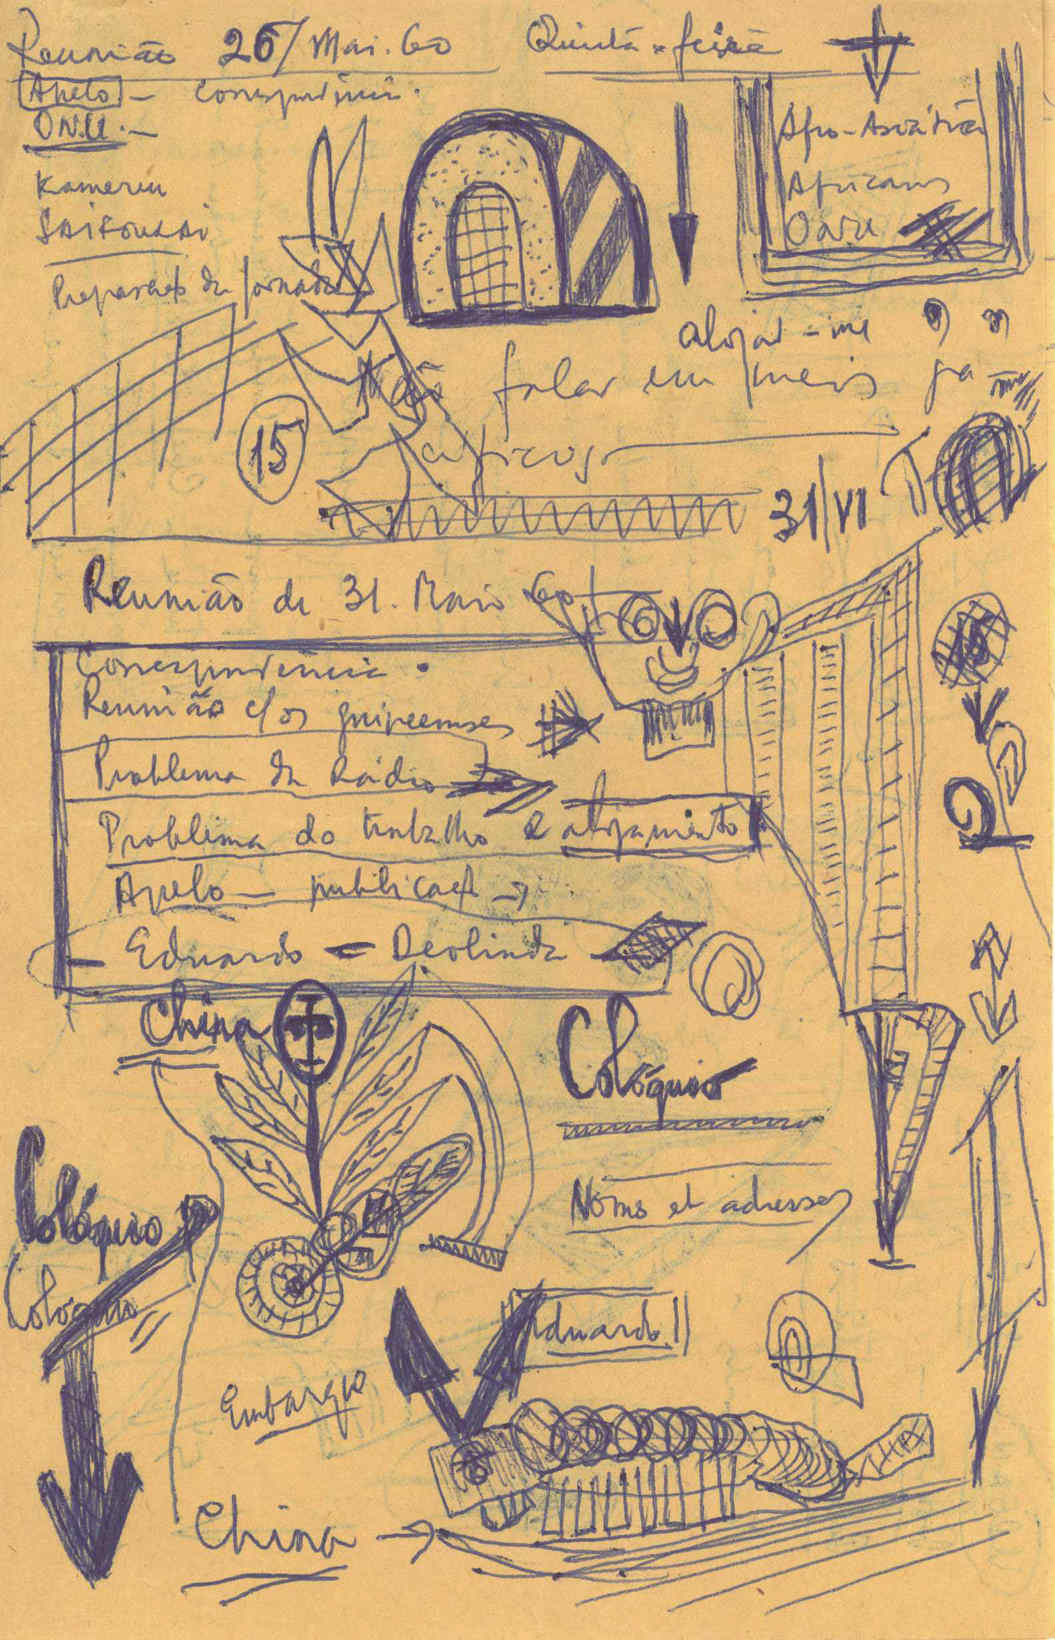 Reunião 26/Mai. 60 Quinta-feira
Apelo - Correspondência.
O.N.U. -
Afro-Asiática
Africanos
Kamerun
O.N.U.
Preparação da jornada
alojar-me
Não falar em
15
31/VI
Reunião de 31. Maio 60
Correspondência.
Reunião c/ os guineenses
Problema da Rádio
Problema do trabalho e alojamento
Apelo - publicação →
- Eduardo = Deolinda
China
Colóquio
Colóquio
Noms et adresses
Colóquio
Eduardo
Embargo
China →